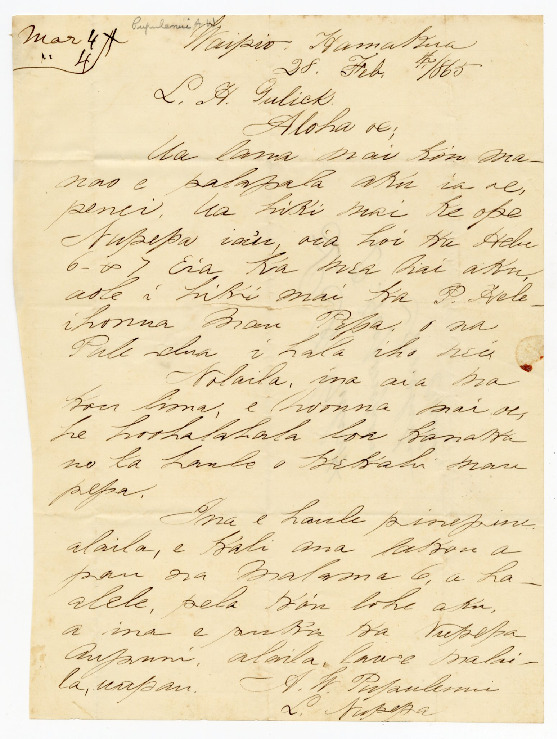 Mar 4
" 4
Waipio. Hamakua
28. Feb. th/1865
L. H. Gulick.
Aloha oe,
Ua lana mai kou ma-
nao e palapala aku ia oe,
penei, Ua hiki mai ke ope
Nupepa ia'u, oia hoi ka Helu
6 7 Eia ka mea hai aku,
aole i hiki mai ka P. Hele-
ihonua mau Pepa, o na
Pule elua i hala iho nei
Nolaila, ina aia ma
kou lima, e hoouna mai oe,
he hoohalahala loa kanaka
no ka haule o kekahi mau
pepa.
Ina e haule pinepine
alaila, e kali ana lakou a
pau na Malama 6, a ha-
alele, pela ko'u lohe aku,
a ina e puka ka Nupepa
Aupuni, alaila, lawe malai-
la, uapau.
A. W. Pupulenui
L. Nupepa